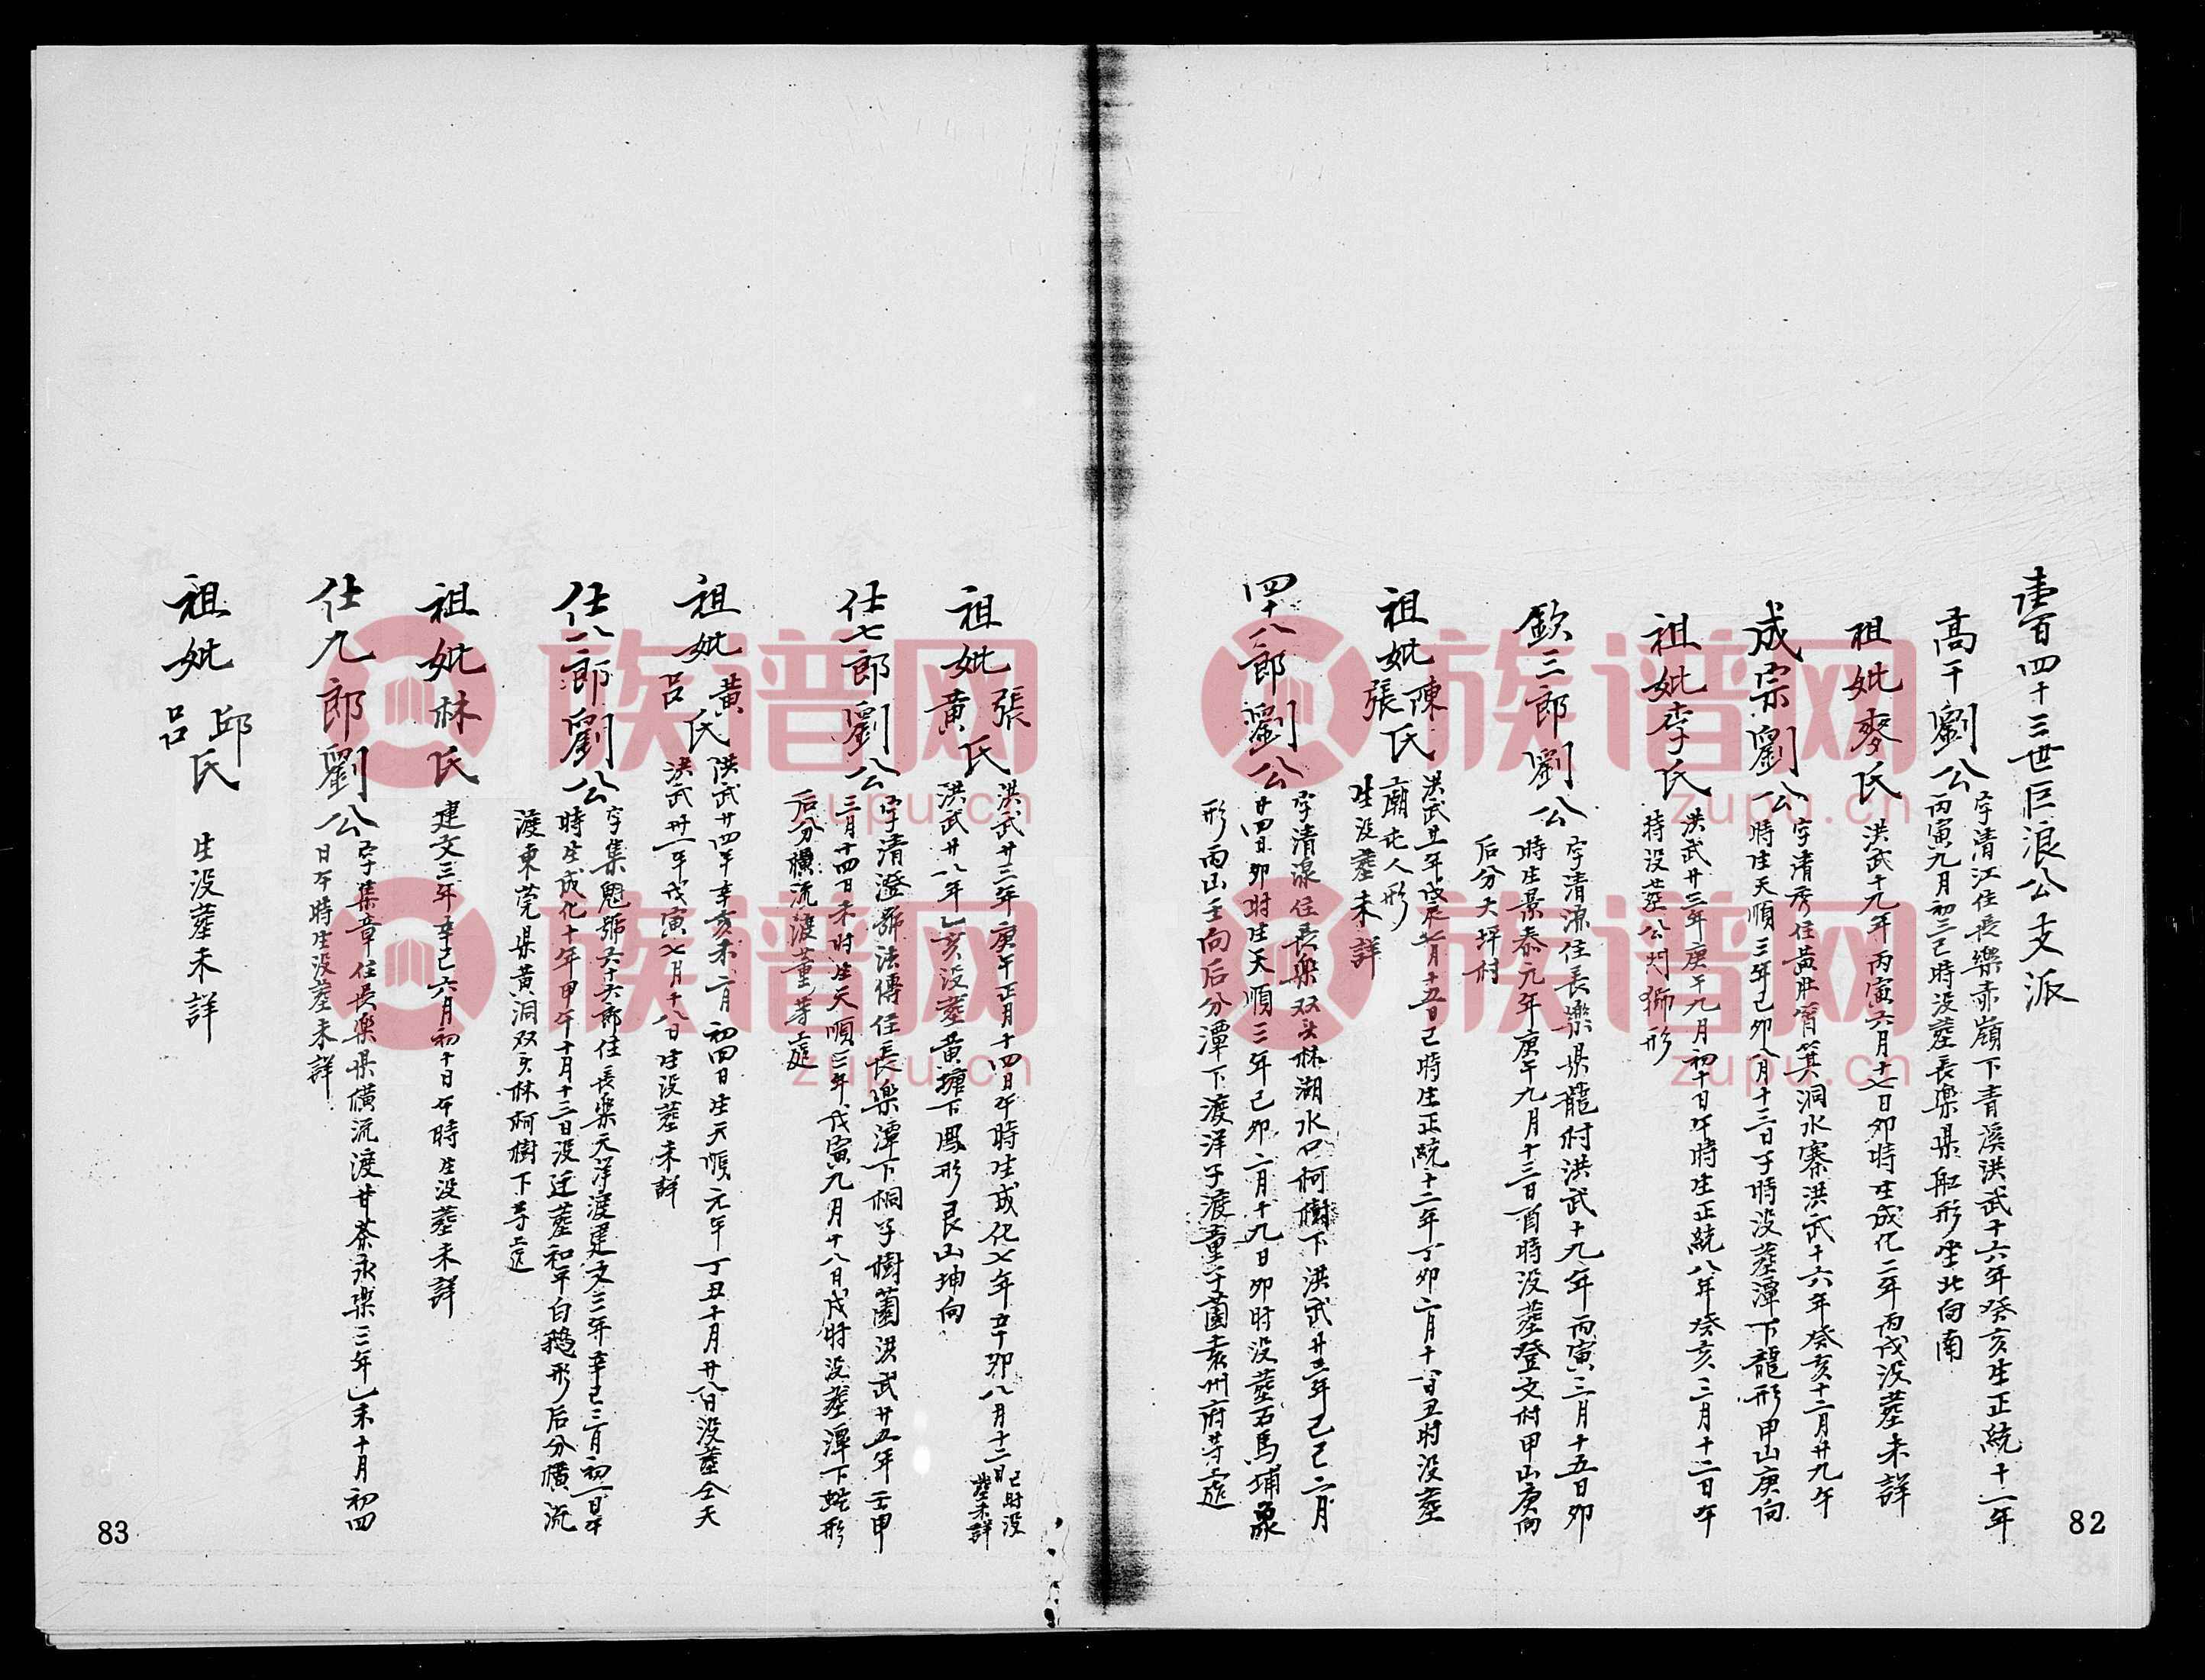 壹百四十三世巨浪公支派
高千劉公
字清江住長樂赤嶺下青溪洪武十六年癸亥生正統十一年
丙寅九月初三巳時没葬長樂県船形坐北向南
祖妣麥氏
洪武十九年丙寅六月十七日卯時生成化二年丙戌没葬未詳
成宗劉公
字清秀住黃肚窩箕洞水寨洪武十六年癸亥十二月廿九午
時生天順三年己卯八月十三日子時没葬潭下龍形甲山庚向
祖妣李氏
洪武廿三年庚午九月初十日午時生正統八年癸亥三月十二日午
時没葬公門獅形
欽三郎劉公
字清源住長樂県龍村洪武十九年丙寅三月十五日卯
時生景泰元年庚午九月十三日酉時没葬登文村甲山庚向
后分大坪村
祖妣陳張氏
洪武廿一年戊辰七月十五日巳時生正統十二年丁卯二月十八日丑时没葬
上廟屯人形
生没葬未詳
四十八郎劉公
字清湶住長樂双头林湖水口柯樹下洪武廿二年己巳二月
廿四日卯时生天順三年己卯二月十九日卯时没葬石馬埔象
形丙山壬向后分潭下渡洋子渡董子薗袁州府等處
祖妣張黃氏
洪武廿三年庚午正月十四日午時生成化七年辛卯八月十二日巳时没
葬未詳
洪武廿八年乙亥没葬黄塘下鳳形艮山坤向
仕七郎劉公
字清澄號法傳住長樂潭下桐子樹薗洪武廿五年壬申
三月十四日未时生天順三年戊寅九月十八日戌时没葬潭下蛇形
后分橫流渡董等處
祖妣黃呂氏
洪武廿四年辛亥未二月初四日生天順元年丁丑十月廿八日没葬仝天
洪武卅一年戊寅七月十八日生没葬未詳
仕八郎劉公
字集魁號六十六郎住長樂元洋渡建文三年辛巳三月初一日午
時生成化十年甲午十月十三日没迁葬和平白鵝形后分橫流
渡東莞県黃洞双头林柯樹下等處
祖妣林氏
建文三年辛巳六月初十日午時生没葬未詳
仕九郎劉公
字集章住長樂県橫流渡甘茶永樂三年乙未十月初四
日午時生没葬未詳
祖妣邱呂氏
生没葬未詳
82
83
族谱网
zupu.cn
族谱网
zupu.cn
族谱网
zupu.cn
族谱网
zupu.cn